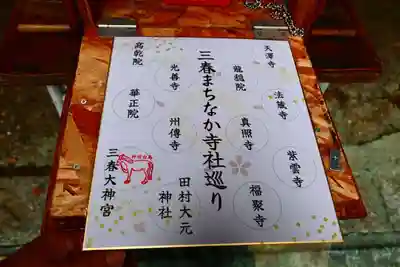 三春まちなか寺社巡り
天澤寺
法蔵寺
紫雲寺
龍穏院
真照寺
福聚寺
田村大元
神社
光善寺
州傳寺
高乾院
華正院
三春大神宮